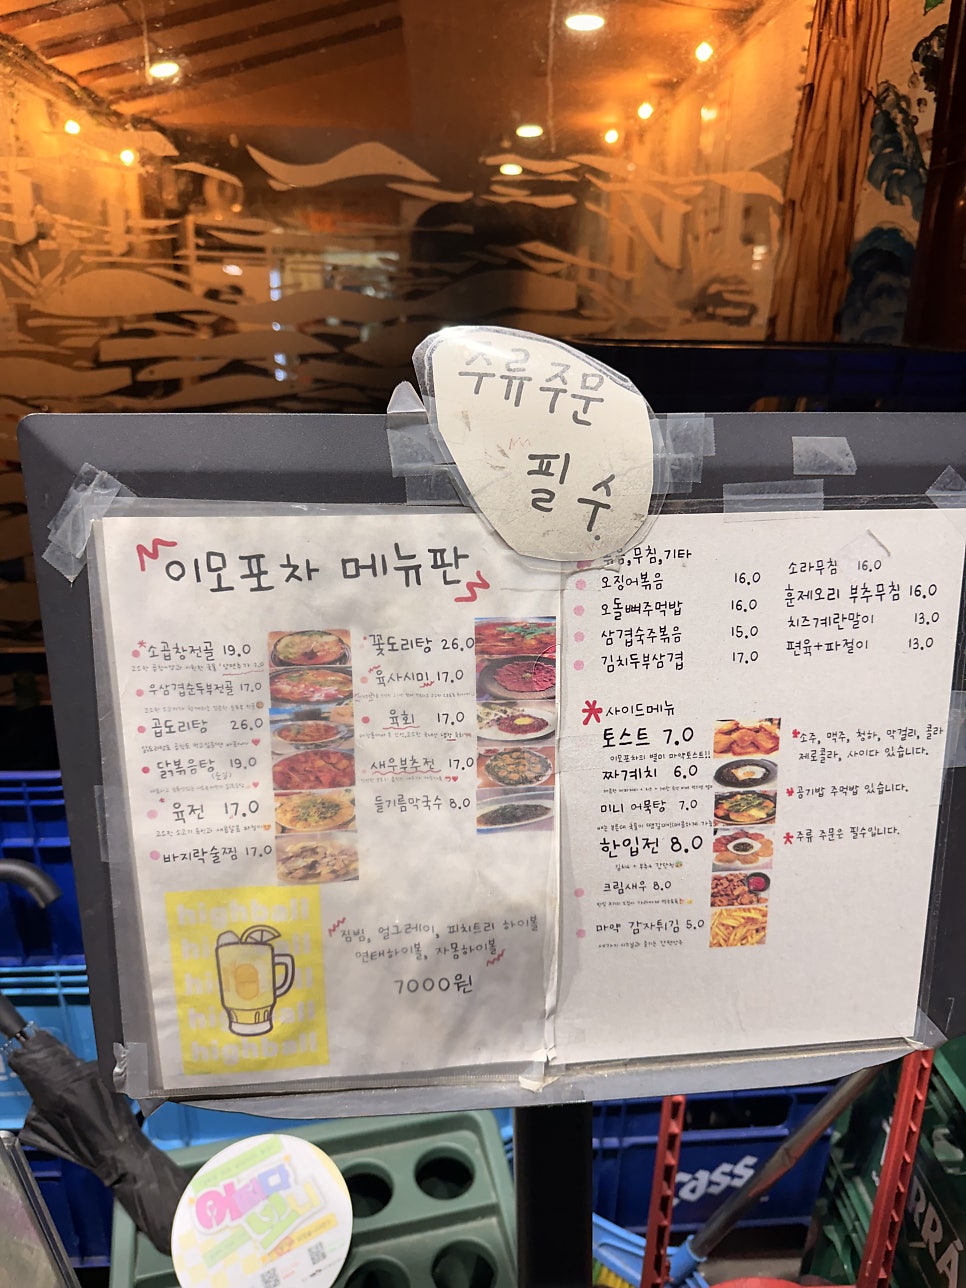 주류주문
필수.
이모포차 메뉴판
소곱창전골 19.0
우삼겹순두부전골 17.0
곱도리탕 26.0
닭볶음탕 19.0
(순살)
육전 17.0
바지락술찜 17.0
꽃도리탕 26.0
육사시미 17.0
육회 17.0
새우부추전 17.0
들기름막국수 8.0
highball
짐빔, 얼그레이, 피치트리 하이볼
연태하이볼, 자몽하이볼
7000원
무침,기타
오징어볶음 16.0
오돌뼈주먹밥 16.0
삼겹숙주볶음 15.0
김치두부삼겹 17.0
소라무침 16.0
훈제오리 부추무침 16.0
치즈계란말이 13.0
편육+파절이 13.0
*사이드메뉴
토스트 7.0
이모포차의 별미 마약토스트!!
짜계치 6.0
미니 어묵탕 7.0
한입전 8.0
크림새우 8.0
마약 감자튀김 5.0
*소주, 맥주, 청하, 막걸리, 콜라
제로콜라, 사이다 있습니다.
*공기밥 주먹밥 있습니다.
*주류 주문은 필수입니다.
cass